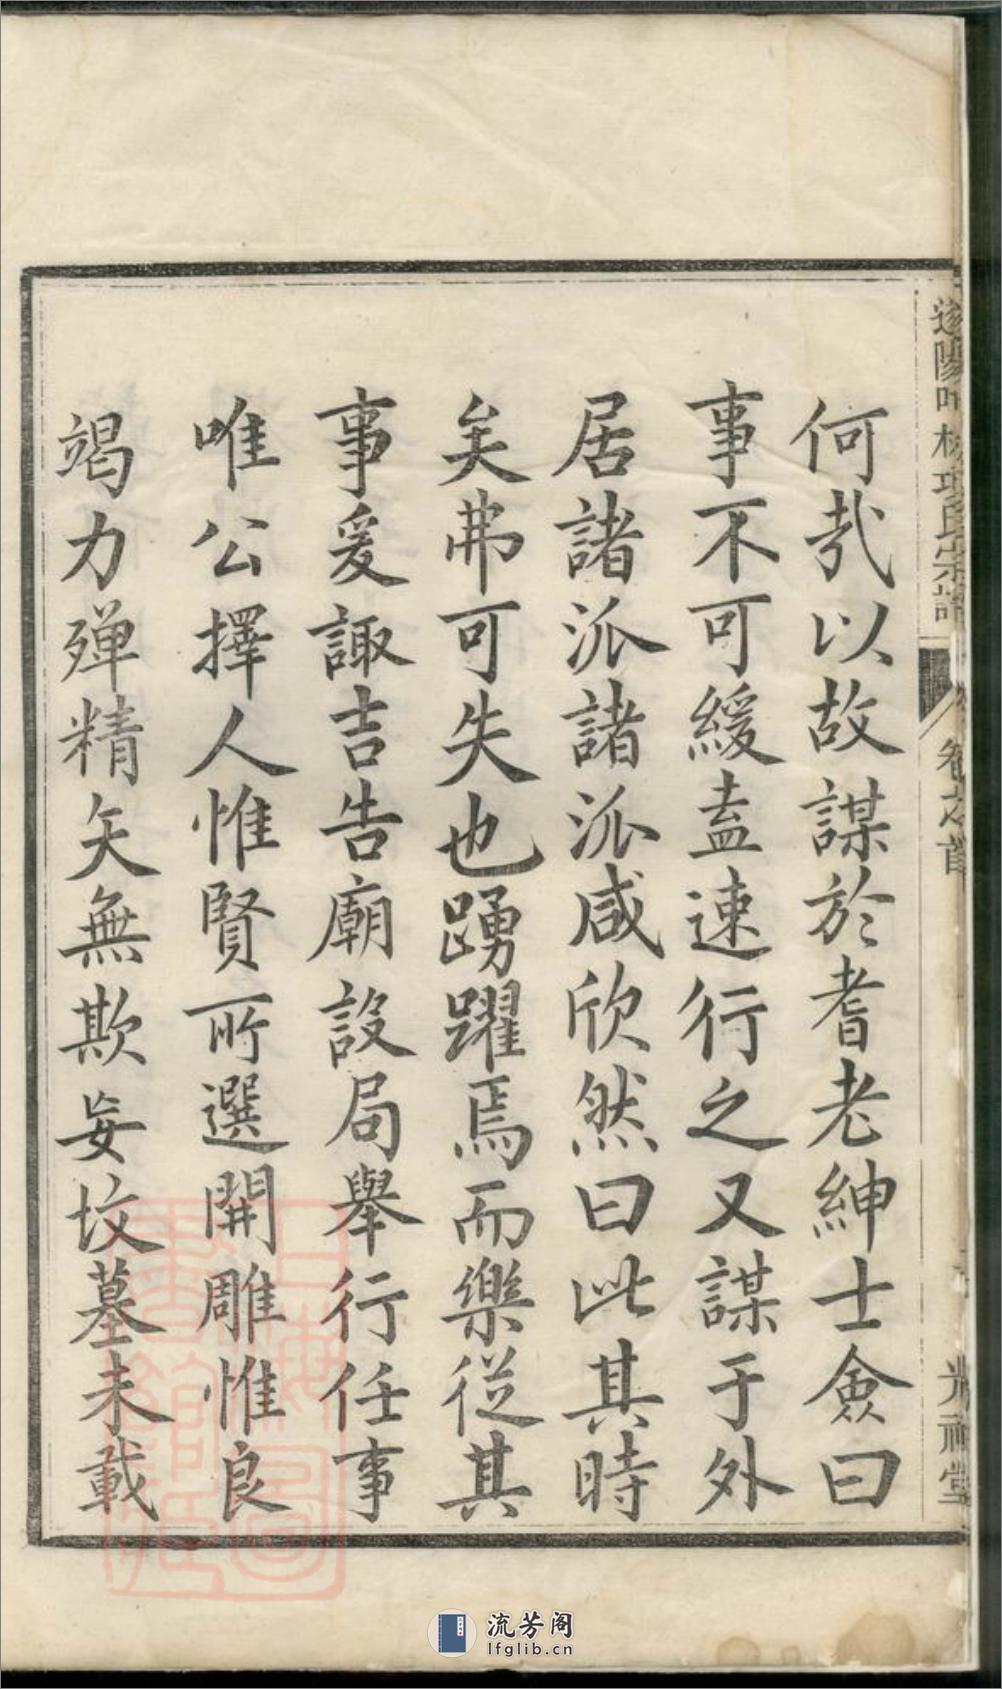 何哉以故謀於耆老紳士僉曰
事不可緩盍速行之又謀于外
居諸派諸派咸欣然曰此其時
矣弗可失也踴躍焉而樂從其
事爰諏吉告廟設局舉行任事
唯公擇人惟賢所選開雕惟良
竭力殫精矢無欺妄坟墓未載
項氏宗譜
卷之首
祠堂
流芳阁
lfglib.cn